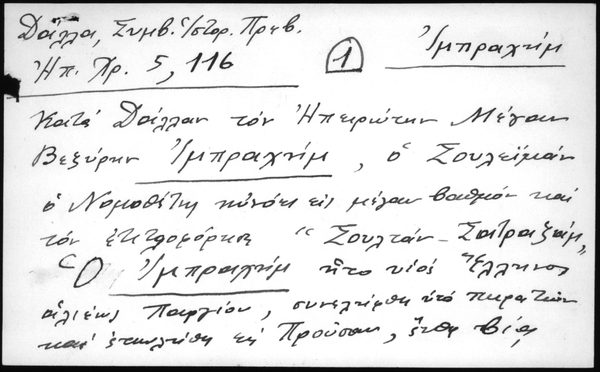 Δάλλα, Συμβ. Ἱστορ. Πρεβ.
Ἠπ. Χρ. 5, 116
1
Ἰμπραχήμ
Κατά Δάλλαν τόν Ἠπειρώτην Μέγαν
Βεζύρην Ἰμπραχήμ, ὁ Σουλεϊμάν
ὁ Νομοθέτης εἰς μέγαν βαθμόν καί
τόν "Σουλτάν-
Ὁ Ἰμπραχήμ ἦτο υἱός Ἕλληνος
ἁλιέως Παργίου, συνελήφθη ὑπό πειρατῶν
καί ἐπωλήθη εἰς Προῦσαν, βίᾳ